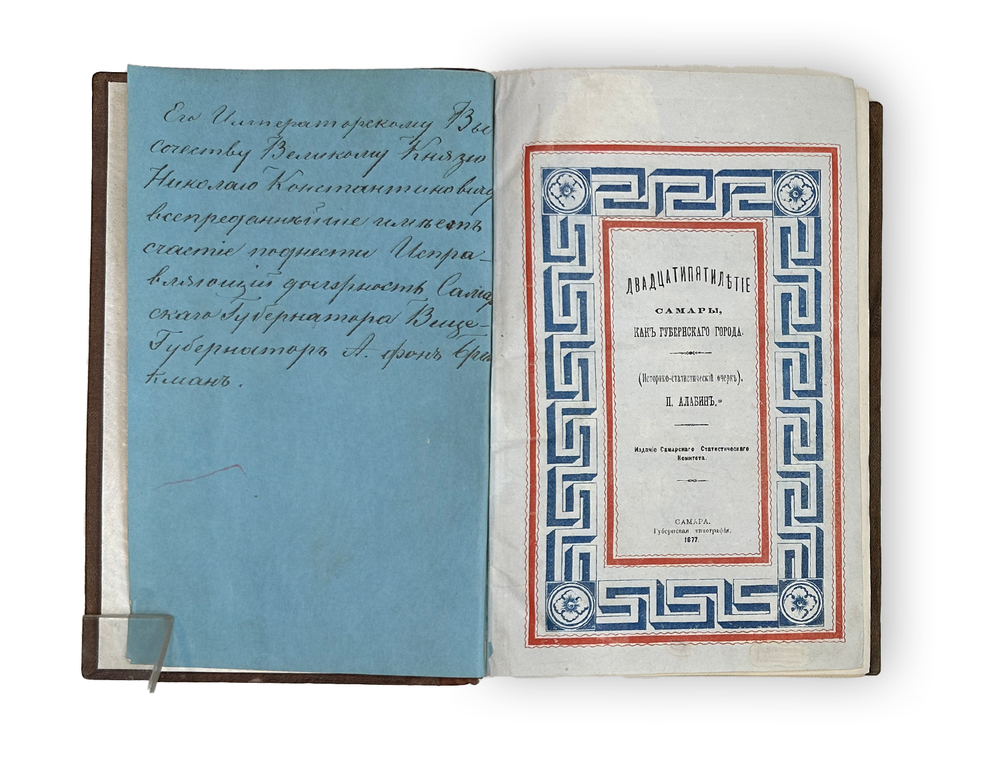 Его Императорскому Вы
сочеству Великому Князю
Николаю Константиновичу
всепреданнѣйше имѣетъ
счастіе поднести Испра-
вляющій должность Самар
скаго Губернатора Вице-
Губернаторъ А. фонъ Бри
кманъ.
ДВАДЦАТИПЯТИЛѢТІЕ
САМАРЫ,
КАКЪ ГУБЕРНСКАГО ГОРОДА.
(Историко-статистическій очеркъ).
П. АЛАБИНЪ.
Изданіе Самарскаго Статистическаго
Комитета.
САМАРА.
Губернская типографія.
1877.